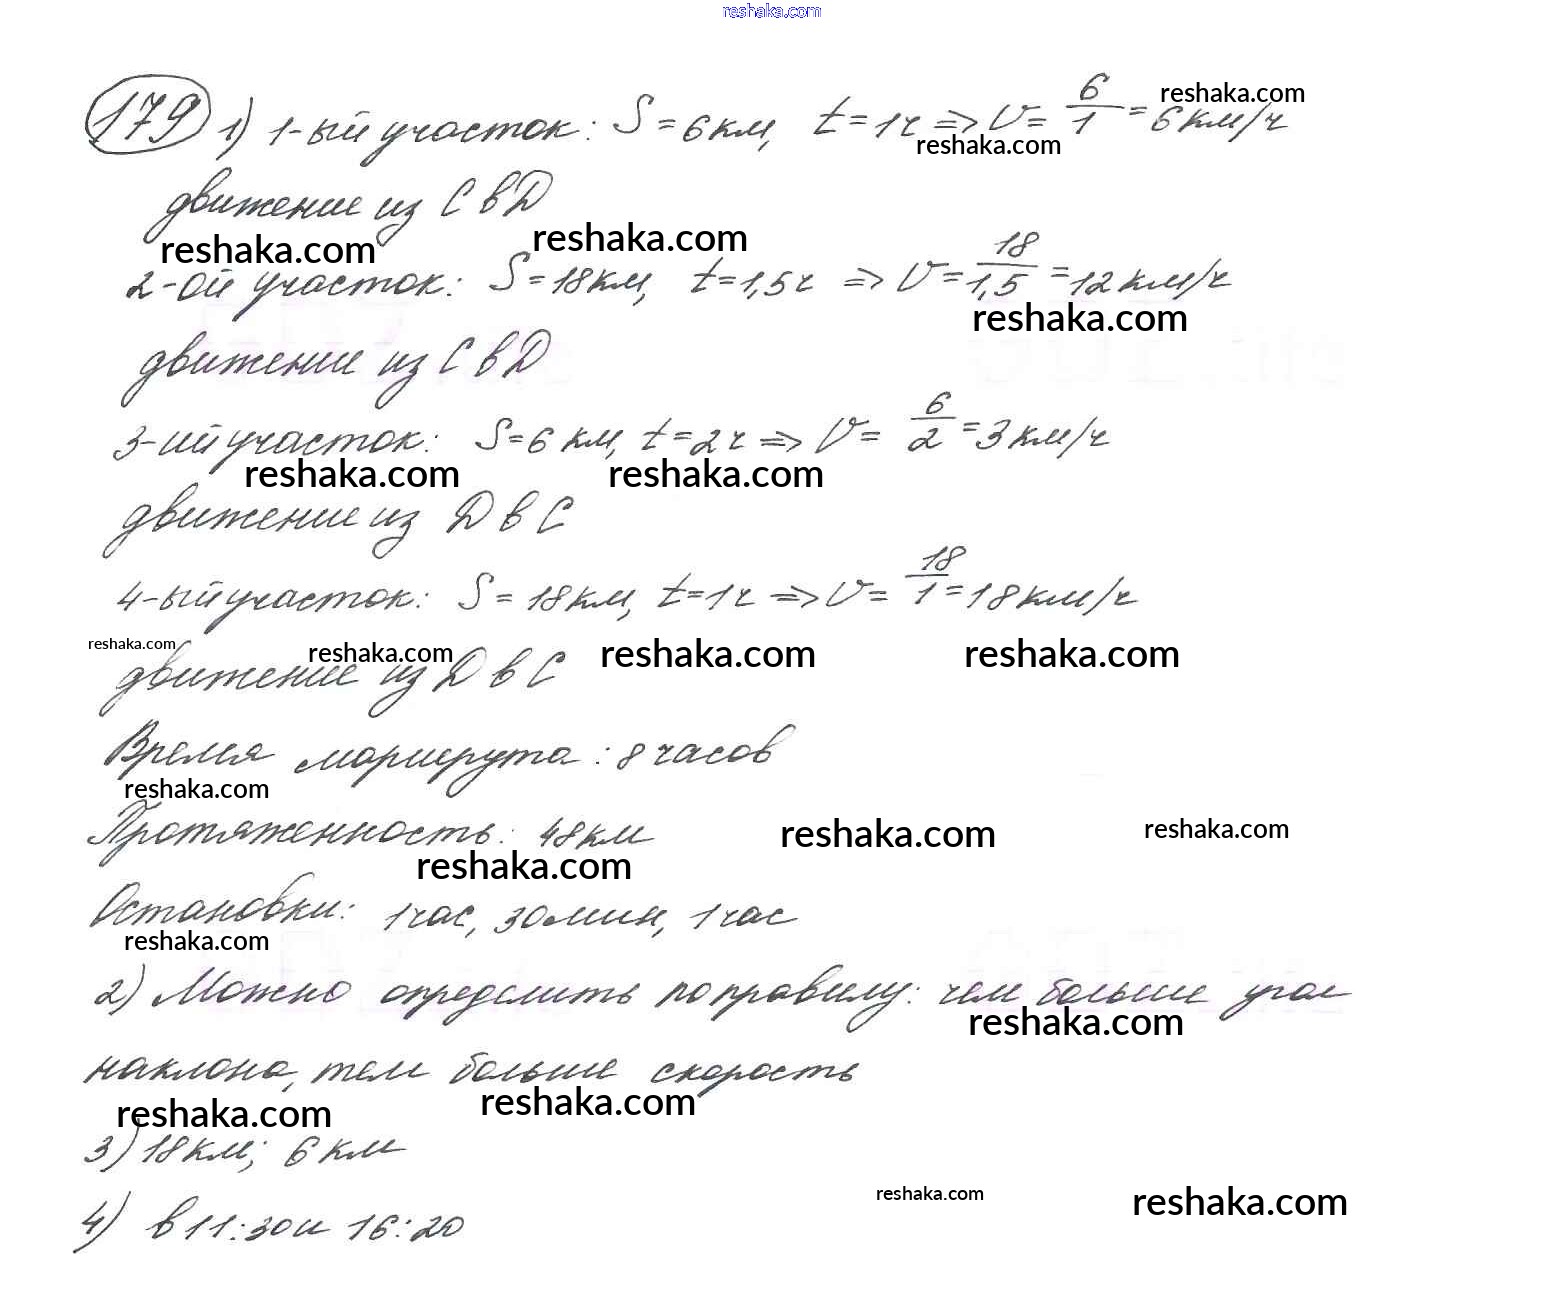 reshaka.com
179 1) 1-ый участок: S = 6 км, t = 1 ч => V = 6/1 = 6 км/ч
reshaka.com
reshaka.com
движение из C в D
reshaka.com reshaka.com
2-ой участок: S = 18 км, t = 1,5 ч => V = 18/1,5 = 12 км/ч
reshaka.com
движение из C в D
3-ий участок: S = 6 км, t = 2 ч => V = 6/2 = 3 км/ч
reshaka.com reshaka.com
движение из D в C
4-ый участок: S = 18 км, t = 1 ч => V = 18/1 = 18 км/ч
reshaka.com reshaka.com reshaka.com reshaka.com
движение из D в C
Время маршрута: 8 часов
reshaka.com
Протяженность: 48 км
reshaka.com reshaka.com
reshaka.com
Остановки: 1 час, 30 мин, 1 час
reshaka.com
2) Можно определить по правилу: чем больше угол
reshaka.com
наклона, тем больше скорость
reshaka.com reshaka.com
3) 18 км; 6 км
reshaka.com reshaka.com
4) в 11:30 и 16:20